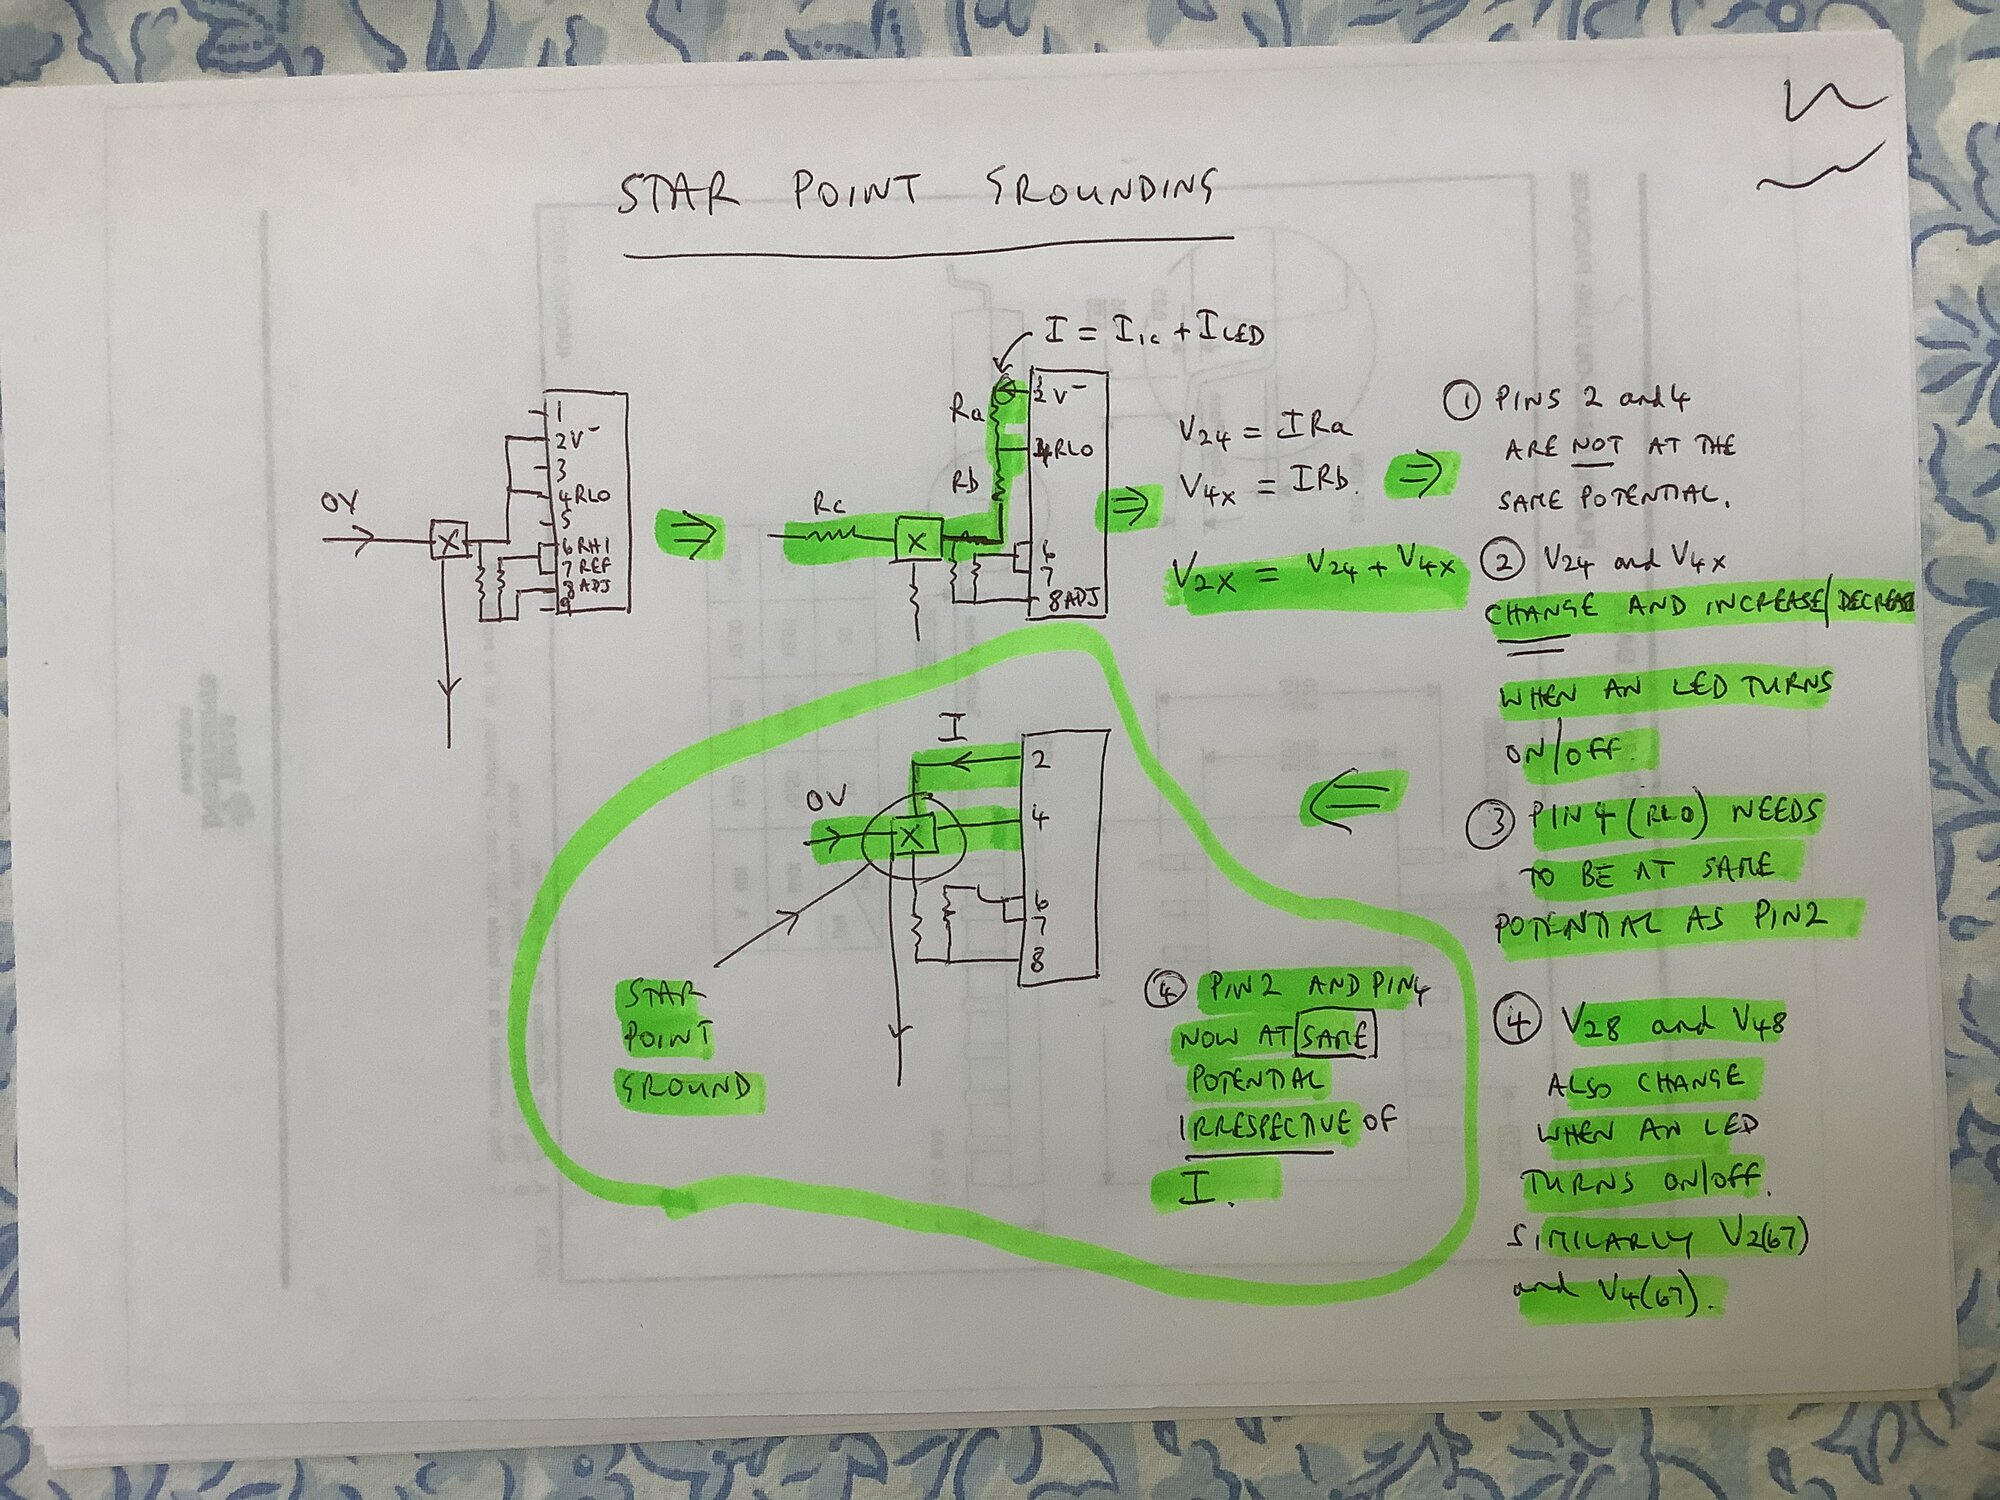 STAR POINT GROUNDING
I = I1c + ILED
1
2V-
3
4RLO
5
6 RHI
7 REF
8 ADJ
9
0V
X
Ra
Rb
Rc
X
2 V-
4RLO
6
7
8 ADJ
V24 = IRa
V4X = IRb.
V2X = V24 + V4X
① PINS 2 and 4
ARE NOT AT THE
SAME POTENTIAL.
② V24 and V4X
CHANGE AND INCREASE/DECREASE
WHEN AN LED TURNS
ON/OFF.
③ PIN 4 (RLO) NEEDS
TO BE AT SAME
POTENTIAL AS PIN2
④ V28 and V48
ALSO CHANGE
WHEN AN LED
TURNS ON/OFF.
SIMILARLY V2(67)
and V4(67).
I
0V
X
2
4
6
7
8
STAR
POINT
GROUND
④ PIN2 AND PIN4
NOW AT SAME
POTENTIAL
IRRESPECTIVE OF
I.